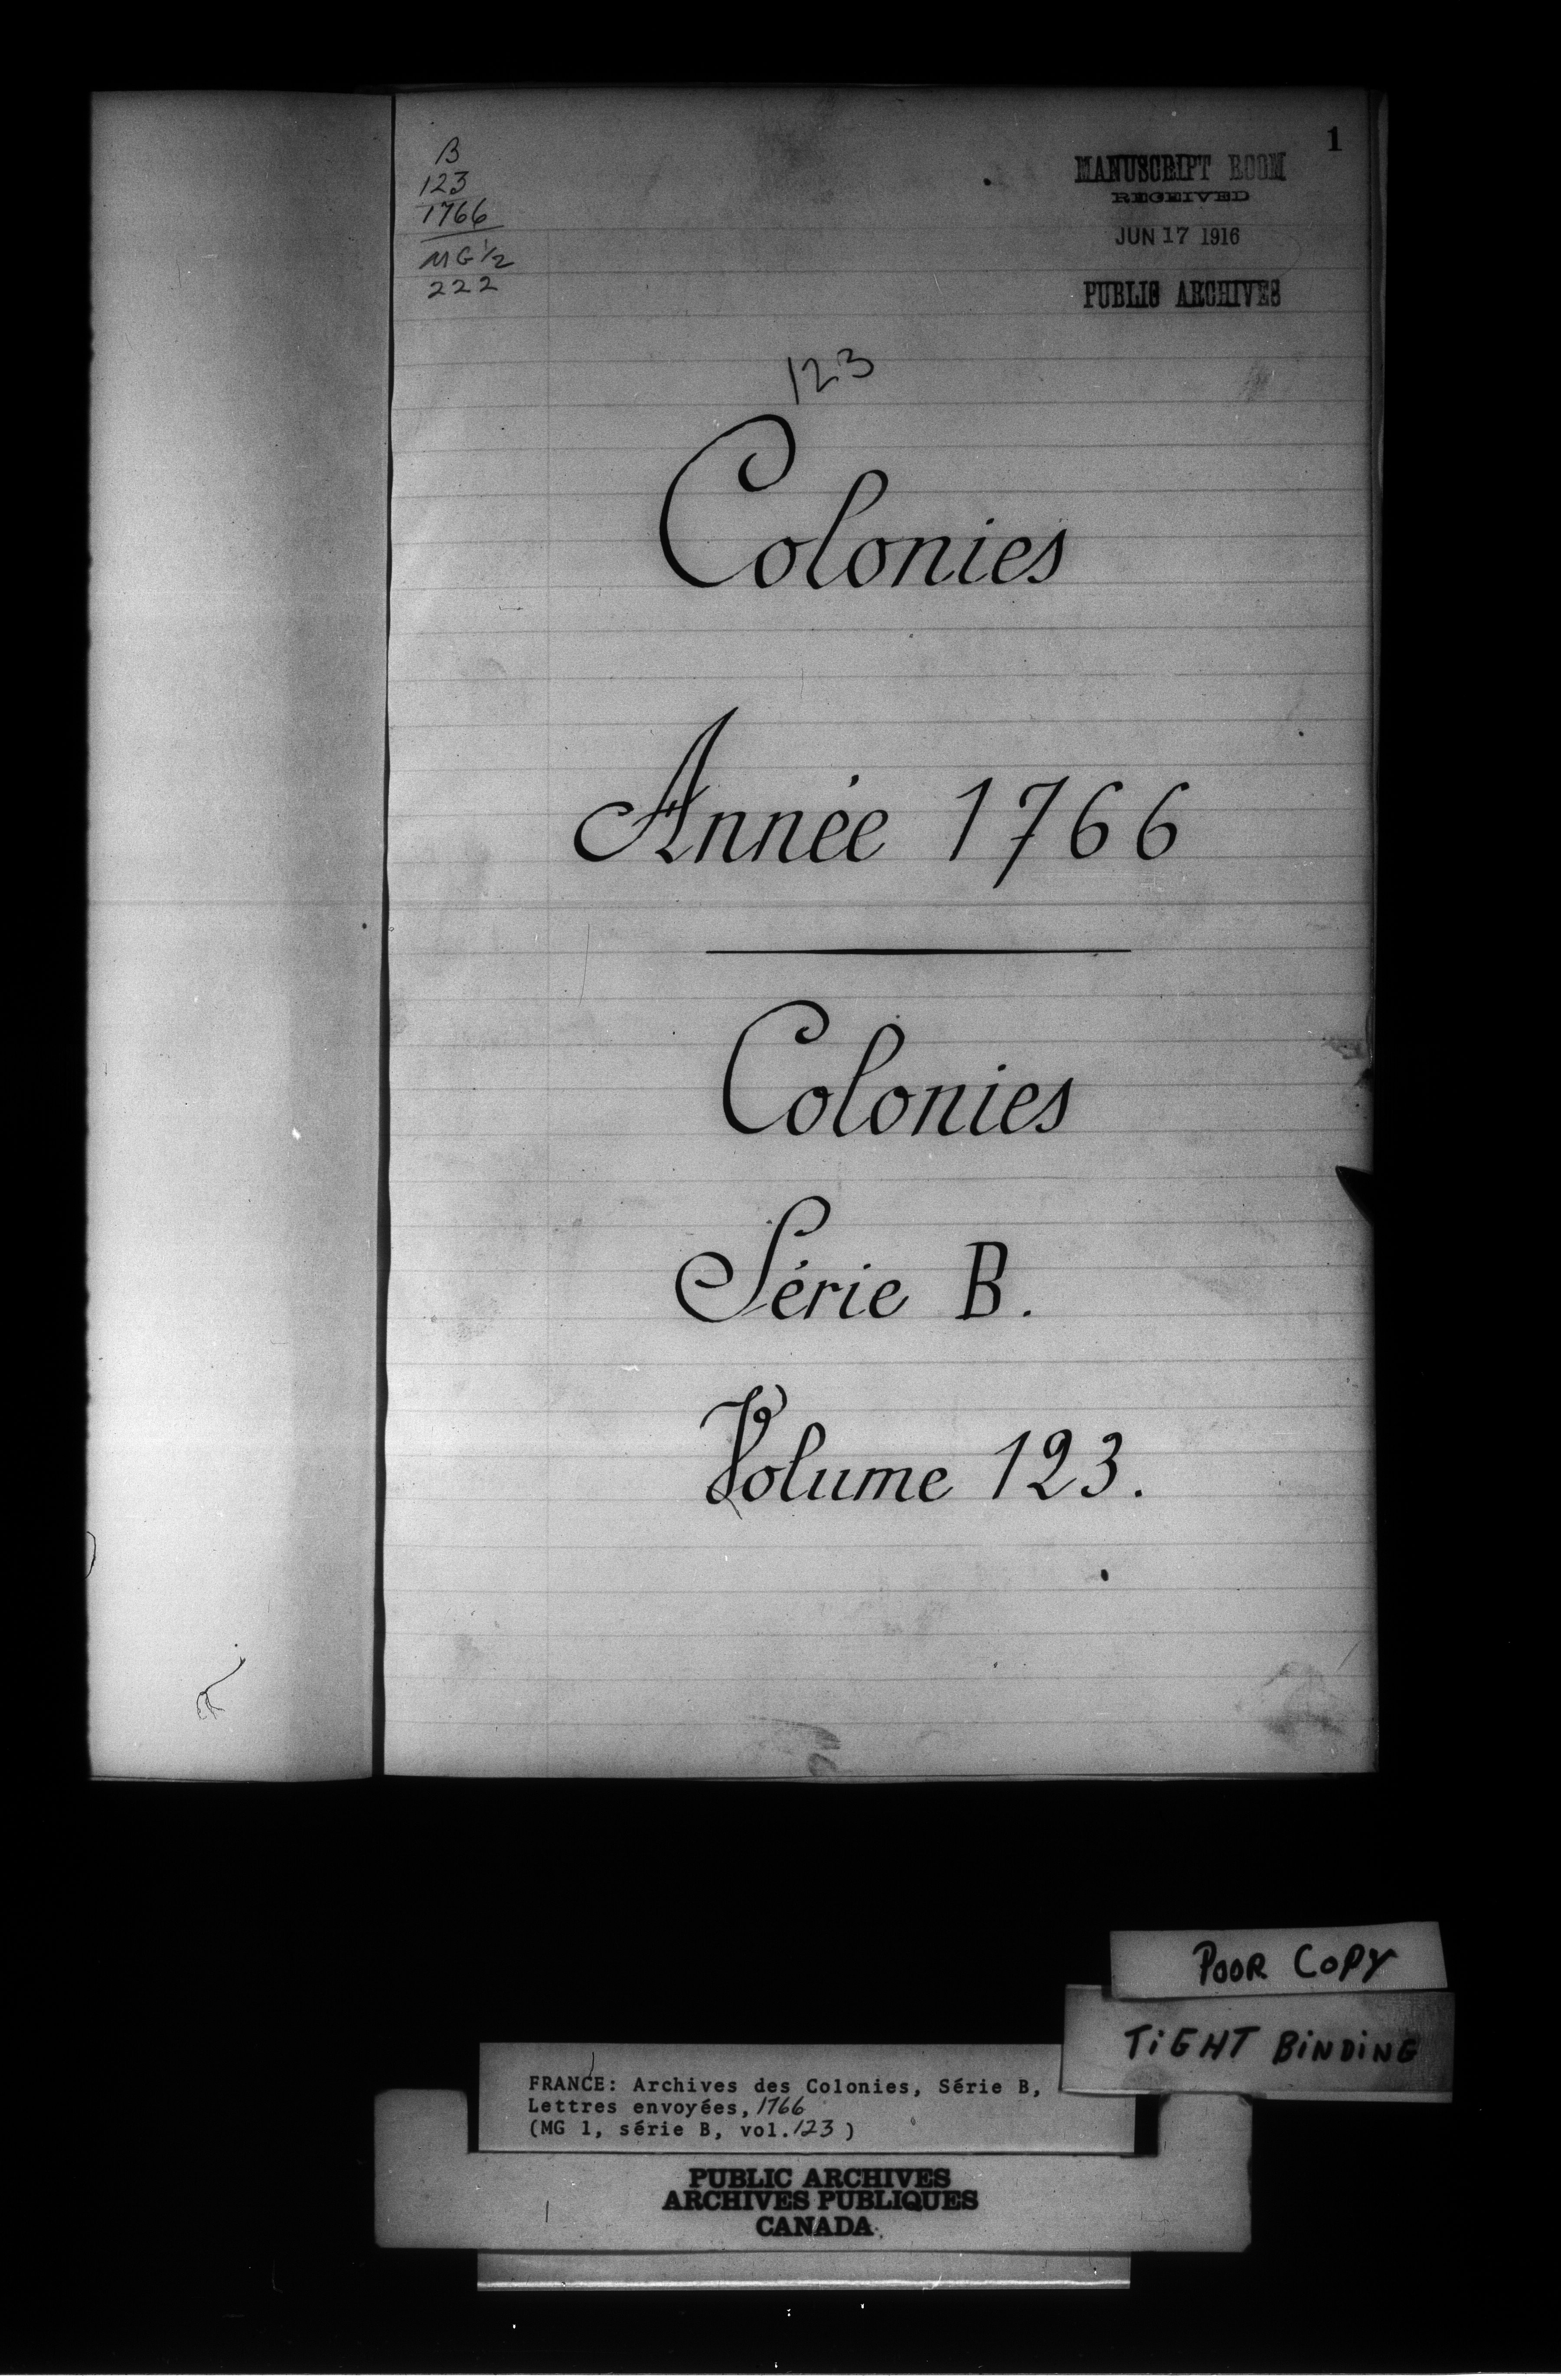 B
123
1766
MG 1/2
222
1
MANUSCRIPT ROOM
RECEIVED
JUN 17 1916
PUBLIC ARCHIVES
123
Colonies
Année 1766
Colonies
Série B.
Volume 123.
POOR COPY
TIGHT BINDING
FRANCE: Archives des Colonies, Série B,
Lettres envoyées, 1766
(MG 1, série B, vol. 123)
PUBLIC ARCHIVES
ARCHIVES PUBLIQUES
CANADA